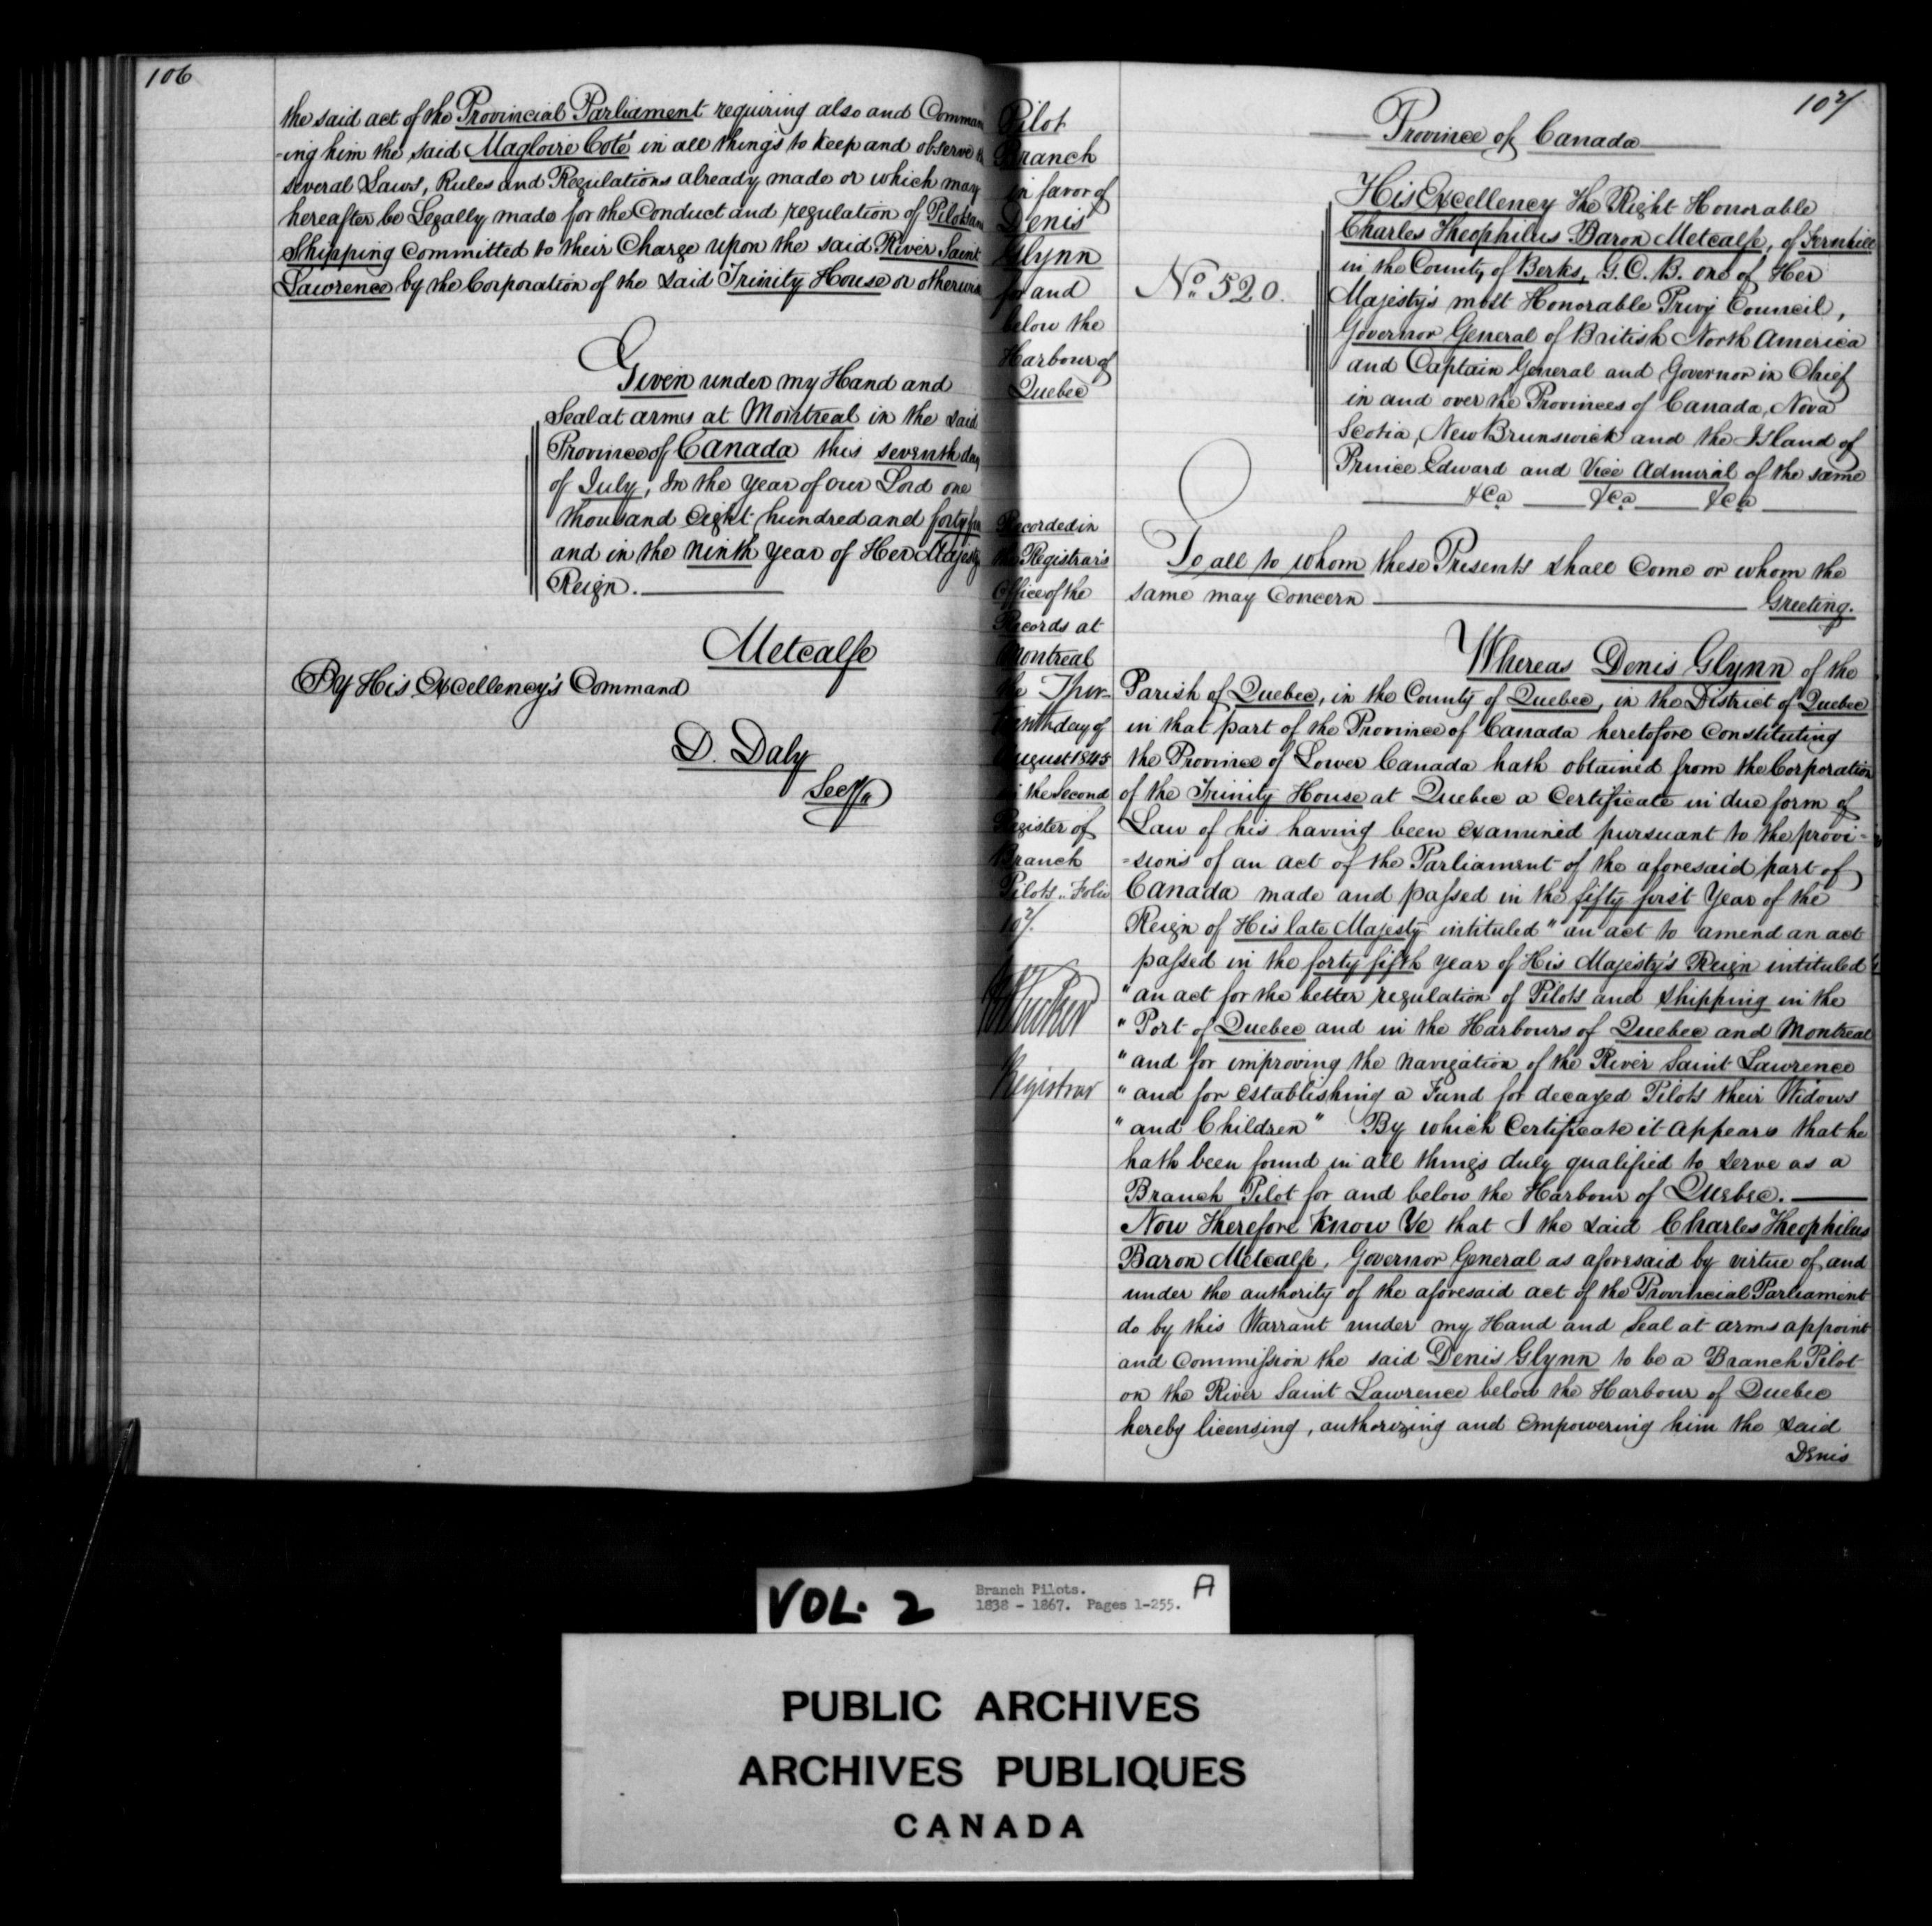 106
the said act of the Provincial Parliament requiring also and Comman
-ing him the said Magloire Coté in all things to keep and observe
several Laws, Rules and Regulations already made or which may
hereafter be Legally made for the Conduct and regulation of Pilots and
Shipping Committed to their Charge upon the said River Saint
Lawrence by the Corporation of the said Trinity House or otherwise
Given under my Hand and
Seal at arms at Montreal in the said
Province of Canada this seventh day
of July, In the year of our Lord one
thousand Eight hundred and forty five
and in the ninth year of Her Majesty
Reign.
Metcalfe
By His Excellency's Command
D. Daly
Secy
Pilot
Branch
in favor of
Denis
Glynn
for and
below the
Harbour of
Quebec
Recorded in
the Registrar's
Office of the
Records at
Montreal
the Thir-
teenth day of
August 1845
in the Second
Register of
Branch
Pilots.. Folio
107.
Registrar
107
Province of Canada
His Excellency The Right Honorable
Charles Theophilus Baron Metcalfe, of Fernhill
in the County of Berks, G.C.B. one of Her
Majesty's most Honorable Privy Council,
Governor General of British North America
and Captain General and Governor in Chief
in and over the Provinces of Canada, Nova
Scotia, New Brunswick and the Island of
Prince Edward and Vice Admiral of the same
&Ca &Ca &Ca
No 520.
To all to whom these Presents shall Come or whom the
same may Concern Greeting.
Whereas Denis Glynn of the
Parish of Quebec, in the County of Quebec, in the District of Quebec
in that part of the Province of Canada heretofore Constituting
the Province of Lower Canada hath obtained from the Corporation
of the Trinity House at Quebec a Certificate in due form of
Law of his having been Examined pursuant to the provi=
=sions of an act of the Parliament of the aforesaid part of
Canada made and passed in the fifty first Year of the
Reign of His late Majesty intituled "an act to amend an act
passed in the forty fifth year of His Majesty's Reign intituled
"an act for the better regulation of Pilots and shipping in the
"Port of Quebec and in the Harbours of Quebec and Montreal
"and for improving the navigation of the River Saint Lawrence
"and for Establishing a Fund for decayed Pilots their Widows
"and Children" By which Certificate it appears that he
hath been found in all things duly qualified to serve as a
Branch Pilot for and below the Harbour of Quebec.
Now Therefore Know Ye that I the said Charles Theophilus
Baron Metcalfe, Governor General as aforesaid by virtue of and
under the authority of the aforesaid act of the Provincial Parliament
do by this Warrant under my Hand and Seal at arms appoint
and Commission the said Denis Glynn to be a Branch Pilot
on the River Saint Lawrence below the Harbour of Quebec
hereby licensing, authorizing and Empowering him the said
Denis
VOL. 2
Branch Pilots.
1838 - 1867. Pages 1-255.
A
PUBLIC ARCHIVES
ARCHIVES PUBLIQUES
CANADA